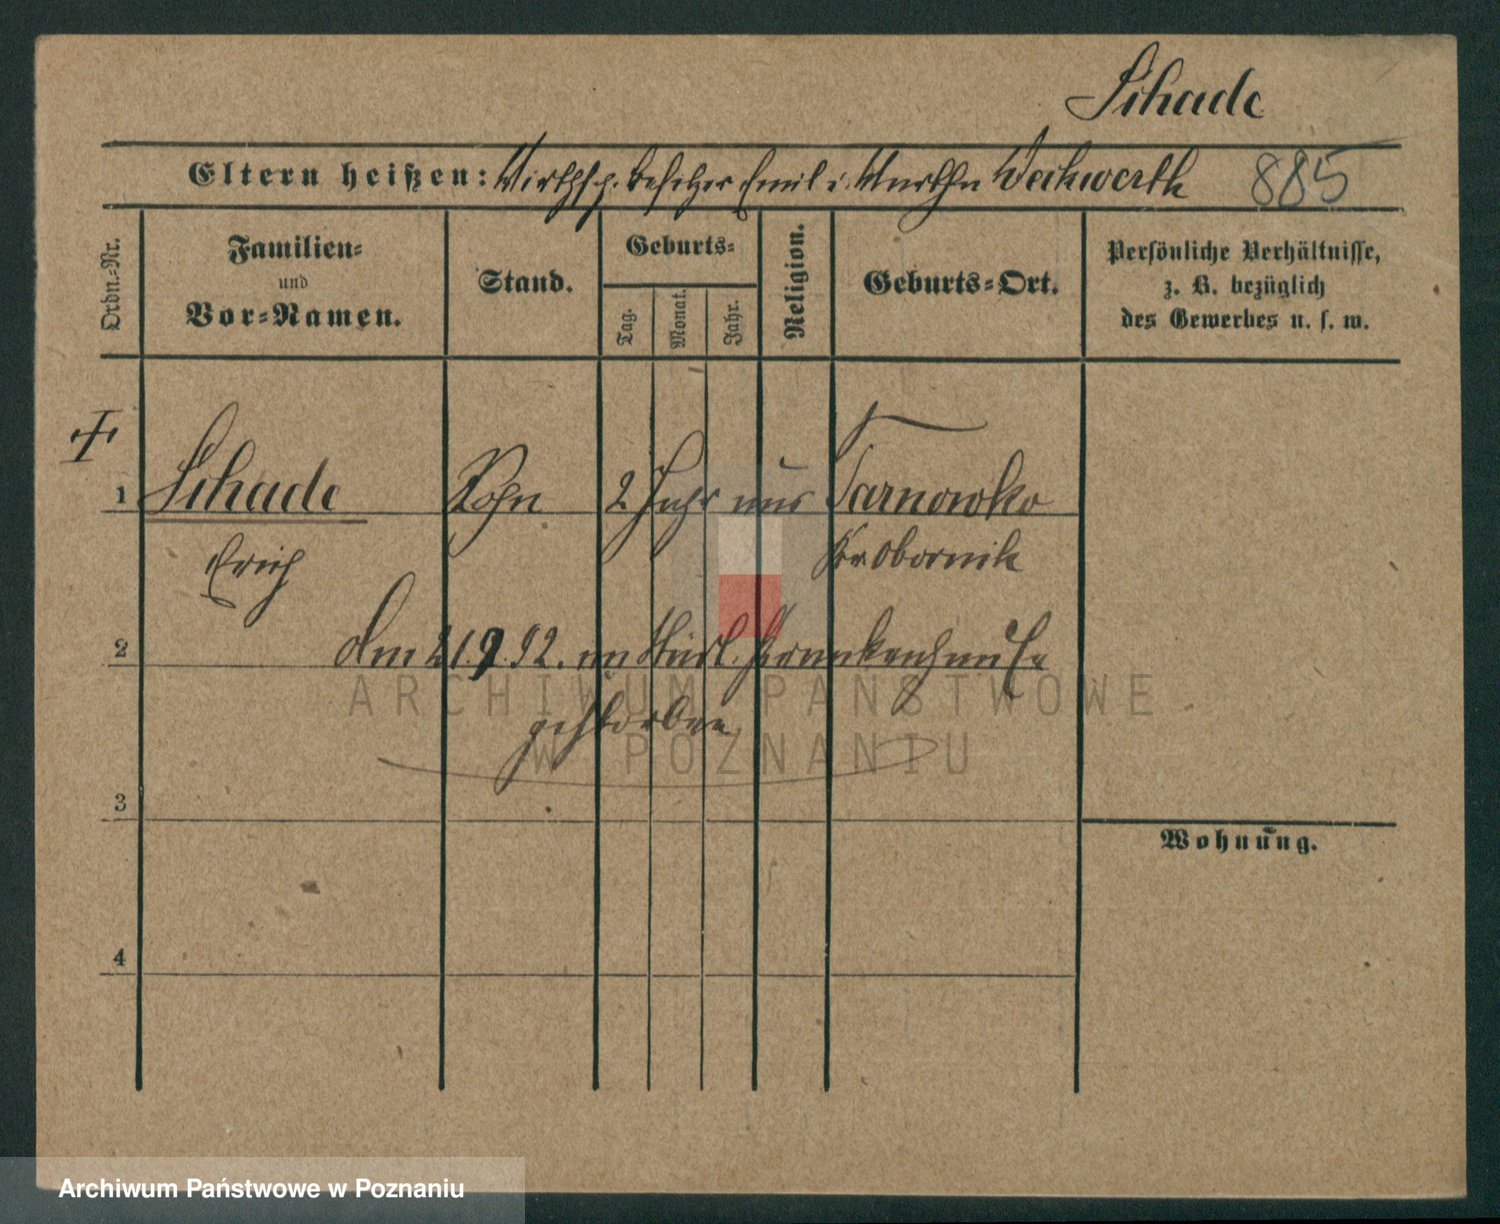 Schade
Eltern heißen: Wirthsch. besitzer Emil u. Martha Weckwerth 885
Ordn.-Nr.
Familien-
und
Vor-Namen.
Stand.
Geburts-
Tag.
Monat.
Jahr.
Religion.
Geburts-Ort.
Persönliche Verhältnisse,
z. B. bezüglich
des Gewerbes u. s. w.
1 Schade Sohn 2 Jahr aus Tarnowko
Erich Kr Obornik
2 Am 21.9.92. im Städt. Krankenhause
gestorben
3
Wohnung.
4
ARCHIWUM PAŃSTWOWE
W POZNANIU
Archiwum Państwowe w Poznaniu